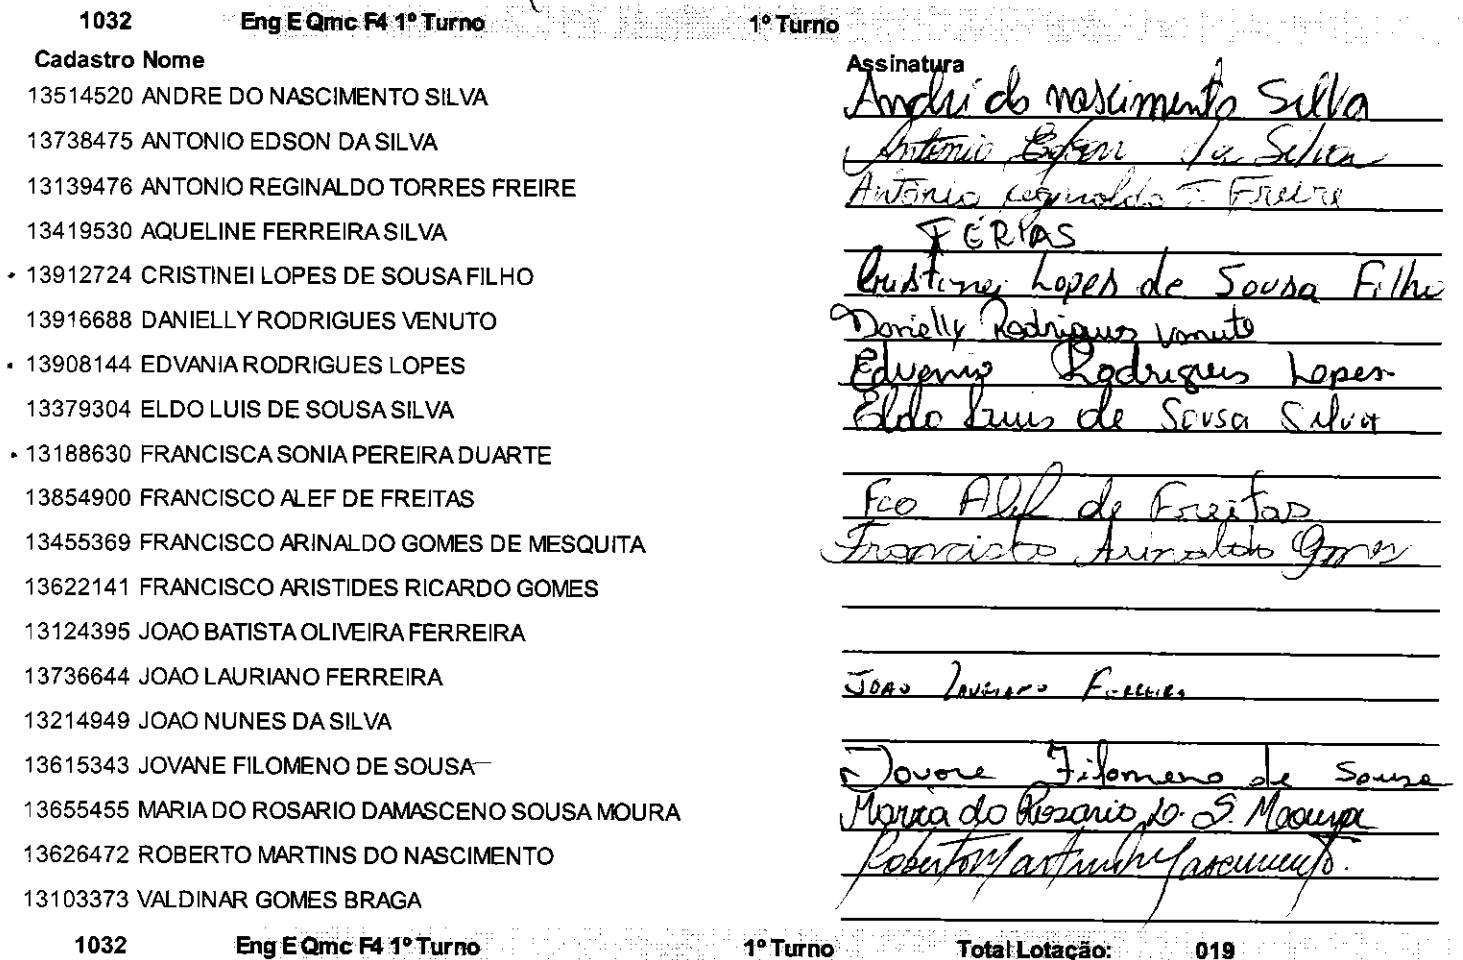 1032 Eng E Qmc F4 1º Turno 1º Turno
Cadastro Nome Assinatura
13514520 ANDRE DO NASCIMENTO SILVA André do nascimento Silva
13738475 ANTONIO EDSON DA SILVA Antonio Edson da Silva
13139476 ANTONIO REGINALDO TORRES FREIRE Antônio reginaldo T Freire
13419530 AQUELINE FERREIRA SILVA FÉRIAS
13912724 CRISTINEI LOPES DE SOUSA FILHO Cristinei Lopes de Sousa Filho
13916688 DANIELLY RODRIGUES VENUTO Danielly Rodrigues Venuto
13908144 EDVANIA RODRIGUES LOPES Edvania Rodrigues Lopes
13379304 ELDO LUIS DE SOUSA SILVA Eldo Luis de Sousa Silva
13188630 FRANCISCA SONIA PEREIRA DUARTE
13854900 FRANCISCO ALEF DE FREITAS Fco Alef de Freitas
13455369 FRANCISCO ARINALDO GOMES DE MESQUITA Francisco Arinaldo Gomes
13622141 FRANCISCO ARISTIDES RICARDO GOMES
13124395 JOAO BATISTA OLIVEIRA FERREIRA
13736644 JOAO LAURIANO FERREIRA JOAO LAURIANO FERREIRA
13214949 JOAO NUNES DA SILVA
13615343 JOVANE FILOMENO DE SOUSA Jovane Filomeno de Sousa
13655455 MARIA DO ROSARIO DAMASCENO SOUSA MOURA Maria do Rosario D. S. Moura
13626472 ROBERTO MARTINS DO NASCIMENTO Roberto Martins Nascimento.
13103373 VALDINAR GOMES BRAGA
1032 Eng E Qmc F4 1º Turno 1º Turno Total Lotação: 019